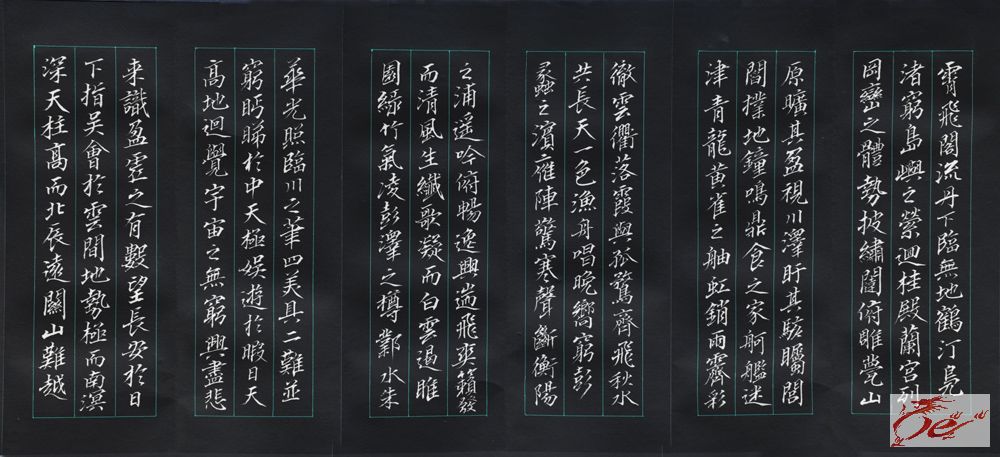 霄飛閣流丹下臨無地鶴汀鳧
渚窮島嶼之縈迴桂殿蘭宮列
岡巒之體勢披繡闥俯雕甍山
原曠其盈視川澤盱其駭矚閭
閻撲地鐘鳴鼎食之家舸艦迷
津青龍黃雀之舳虹銷雨霽彩
徹雲衢落霞與孤鶩齊飛秋水
共長天一色漁舟唱晚響窮彭
蠡之濱雁陣驚寒聲斷衡陽
之浦遥吟俯暢逸興遄飛爽籟發
而清風生纖歌凝而白雲遏睢
園緑竹氣凌彭澤之樽鄴水朱
華光照臨川之筆四美具二難並
窮眄睇於中天極娱遊於暇日天
高地迥覺宇宙之無窮興盡悲
来識盈虛之有數望長安於日
下指吴會於雲間地勢極而南溟
深天柱高而北辰遠關山難越